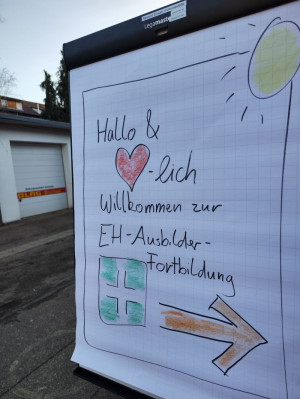 Legamaster
Hallo &
-lich
Willkommen zur
EH-Ausbilder-
Fortbildung